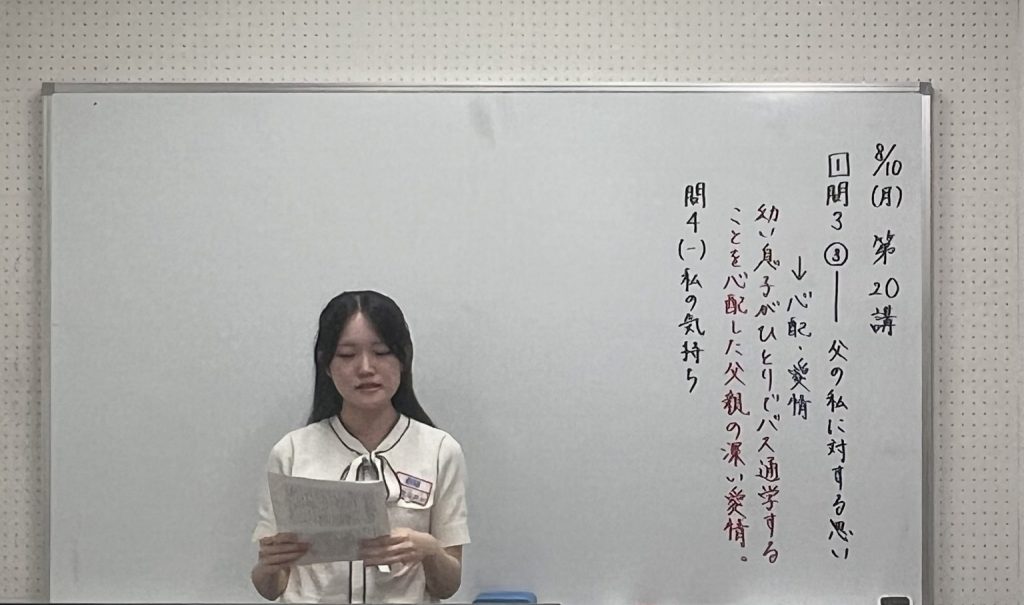 8/10(月) 第20講
1 問3 ③── 父の私に対する思い
↓心配・愛情
幼い息子がひとりでバス通学する
ことを心配した父親の深い愛情。
問4(一)私の気持ち